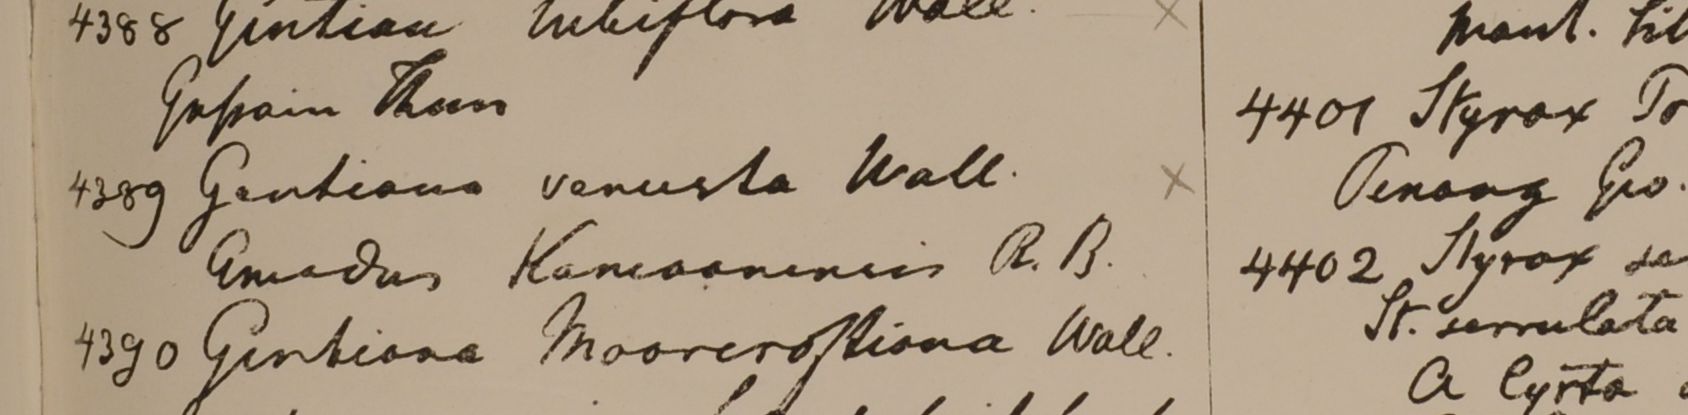 4388 Gentiana tubiflora Wall.
Gossain Than
4389 Gentiana venusta Wall.
Emodus Kamaonensis R. B.
4390 Gentiana Moorcroftiana Wall.
4401 Styrax
Penang
4402 Styrax
St. serrulata
A Cyrta